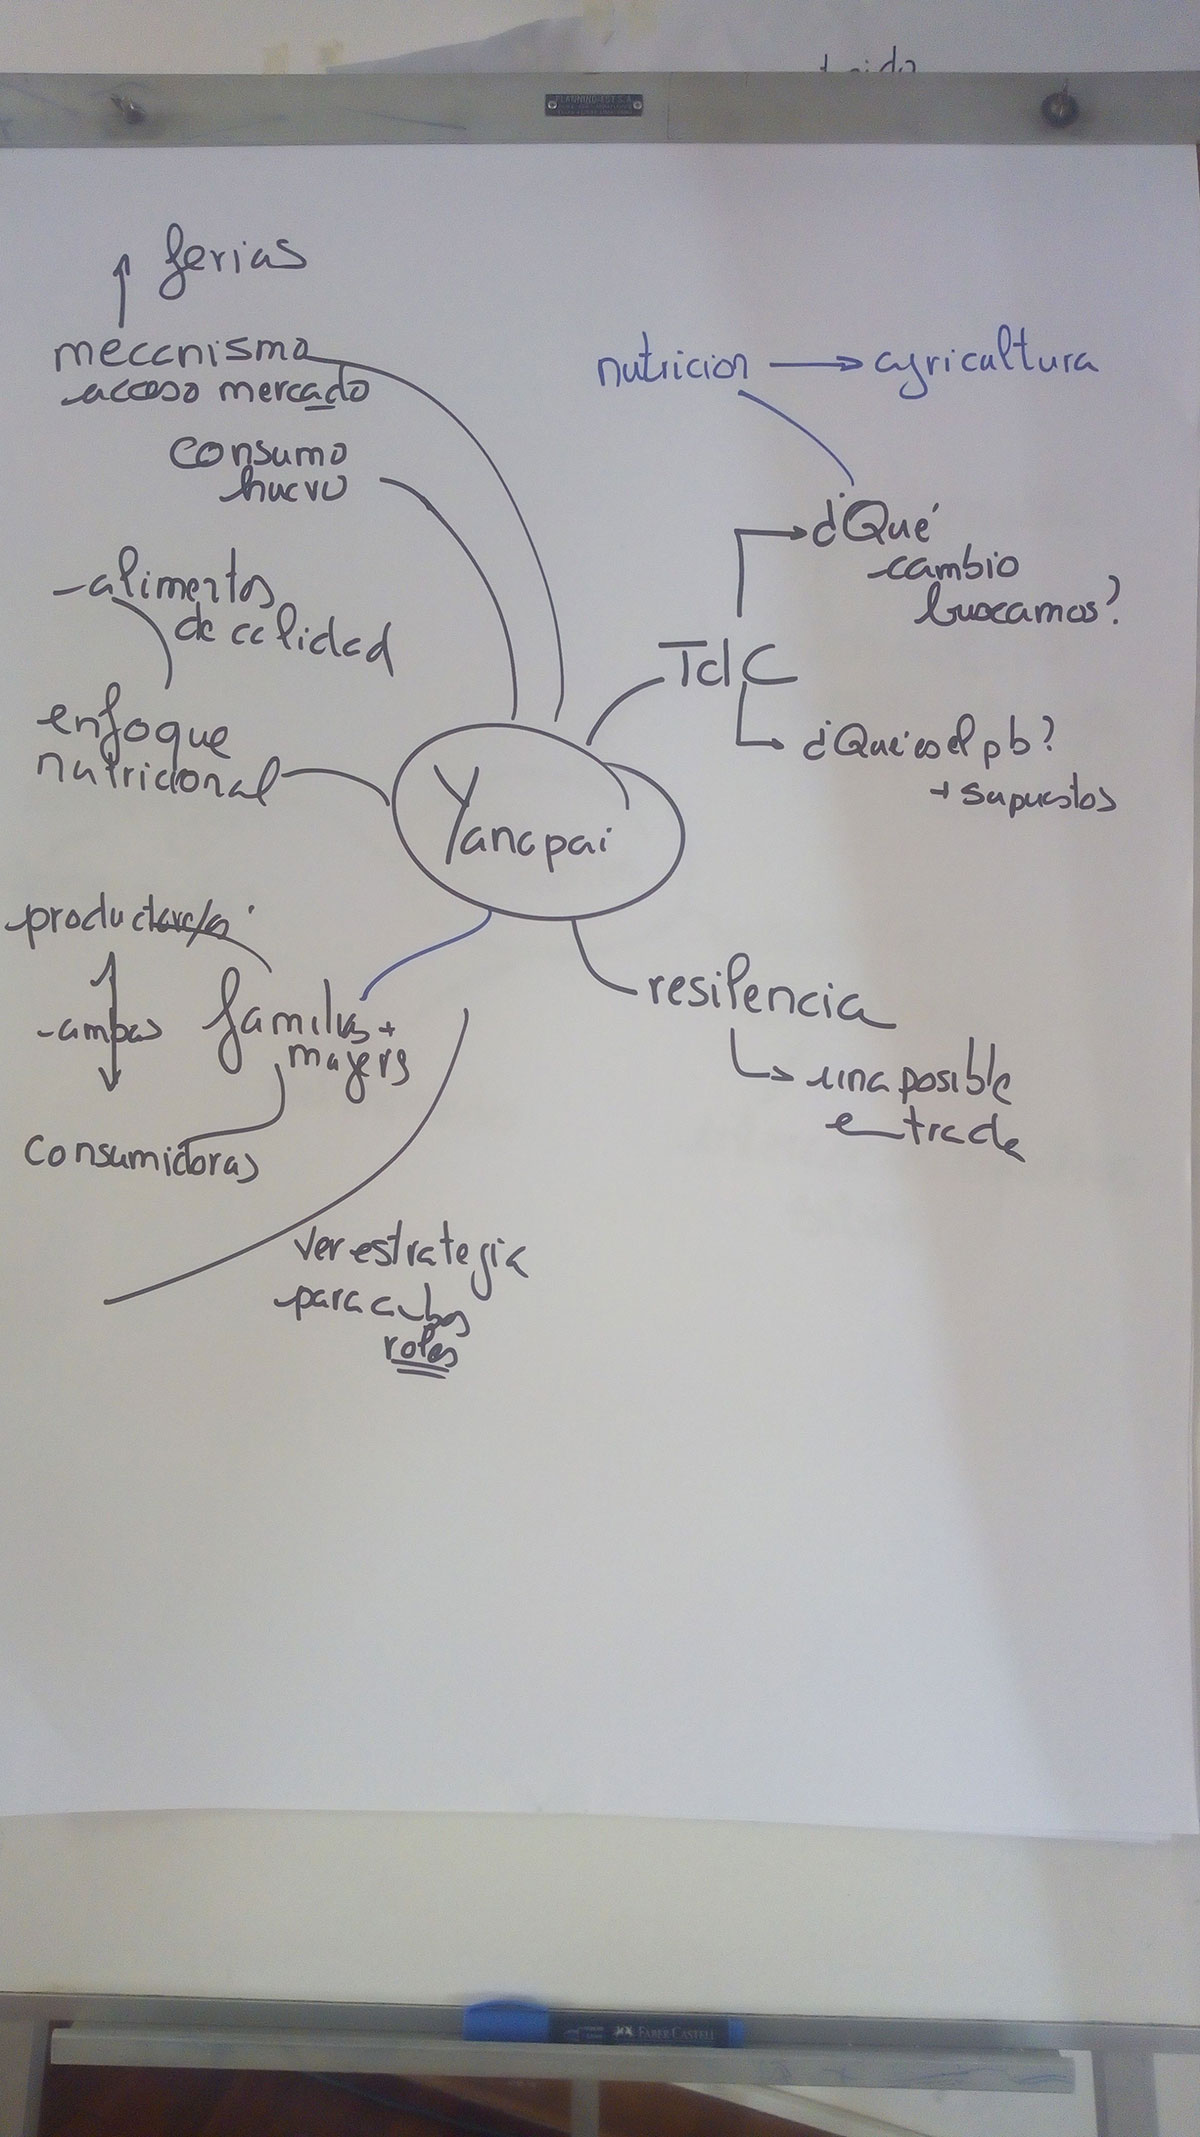 ferias
meccnismo
acceso mercado
consumo
huevo
-alimentos
de calidad
enfoque
nutricional
nutricion → agricultura
¿Qué
cambio
buscamos?
TdC
¿Qué es el pb?
+ supuestos
Yanapai
-ambas
familias +
mujers
consumidoras
resilencia
una posible
entrada
ver estrategia
para ambos
roles
FABER-CASTELL